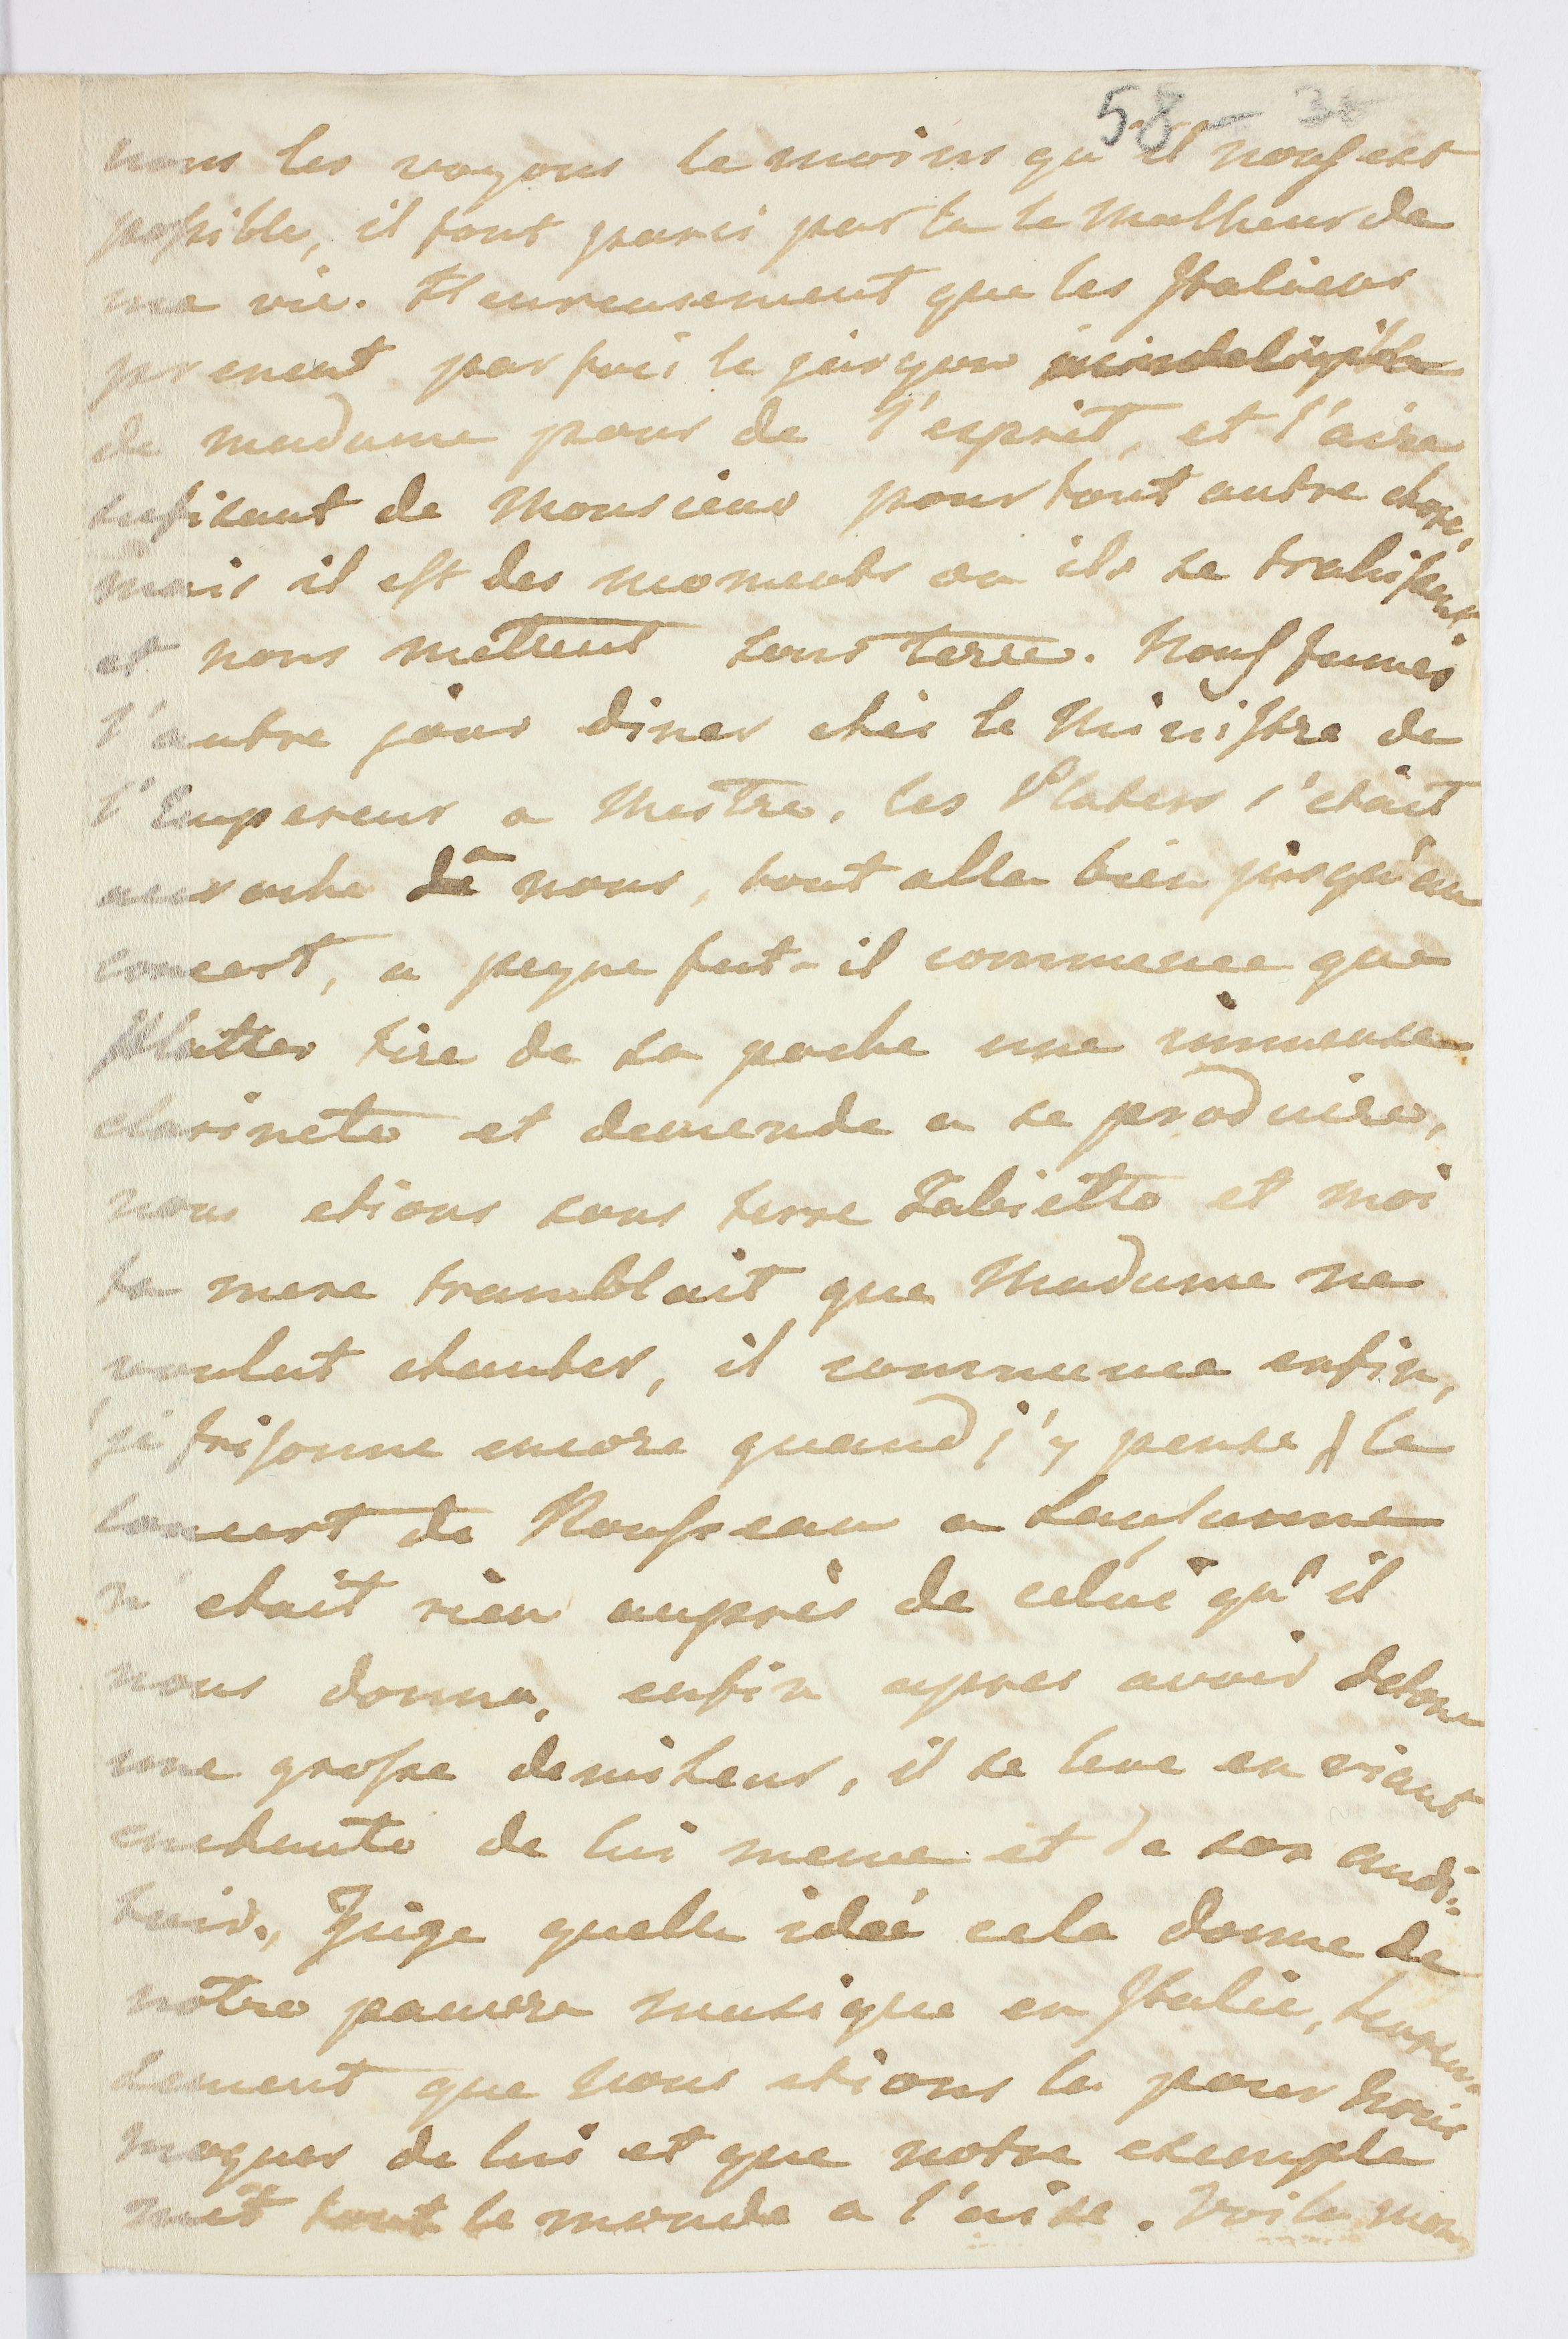 58 - 30
nous les voyons le moins qu'il nous est
possible, il font parci par la le Malheur de
ma vie. Heureusement que les Italiens
prenent par fois le jargon ininteligible
de madame pour de l'esprit, et l'aire
sufisant de Monsieur pour tout autre chose,
mais il est des moments ou ils se trahissent
et nous mettent sous terre. Nous fumes
l'autre jour diner chès le Ministre de
l'Empereur a Mestre, les Platers s'etait
acroche a nous, tout alla bien jusqu'au
concert, a peyne fut-il commence que
Platter tire de sa poche une immense
clarinete et demende a se produire,
nous etions sous terre Jabiette et moi
ta mere tramblait que Madame ne
voulut chanter, il commence enfin,
je frisonne encore quand j'y pense, le
concert de Rousseau a Lausanne
n'etait rien auprès de celui qu'il
nous donna, enfin apres avoir detone
une grosse demiheur, il se leve en riant
enchante de lui meme et de son audi-
toir, Juge quelle ideé cela donne de
nôtre pauvre musique en Italie, heureu-
sement que nous etions la pour nous
moquer de lui et que notre exemple
mèt tout le monde a l'aise. Voila mon